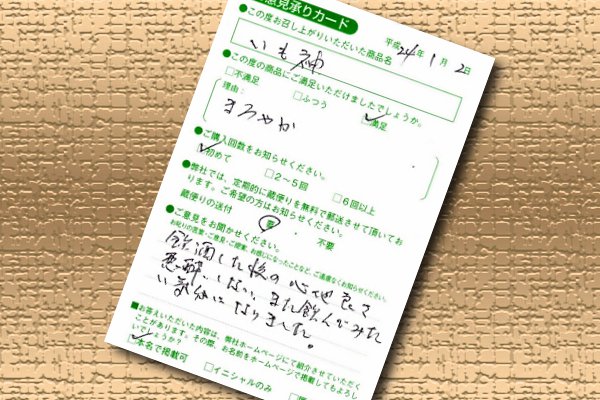 ご意見承りカード
●この度お召し上がりいただいた商品名 平成24年1月2日
いも神
●この度の商品にご満足いただけましたでしょうか。
□不満足 □ふつう □満足
理由：
まろやか
●ご購入回数をお知らせください。
□初めて □2～5回 □6回以上
●弊社では、定期的に蔵便りを無料で郵送させて頂いてお
ります。ご希望の方はお知らせください。
蔵便りの送付 要 ・ 不要
●ご意見をお聞かせください。
お叱りの言葉・ご意見・ご提案、お感じになったことなど、ご遠慮なくお知らせください。
飲酒した後の心地良さ
悪酔いしない、また飲んでみた
い気分になりました。
■お答えいただいた内容は、弊社ホームページにて紹介させていただく
ことがあります。その際、お名前をホームページで掲載してもよろし
いでしょうか？
□本名で掲載可 □イニシャルのみ